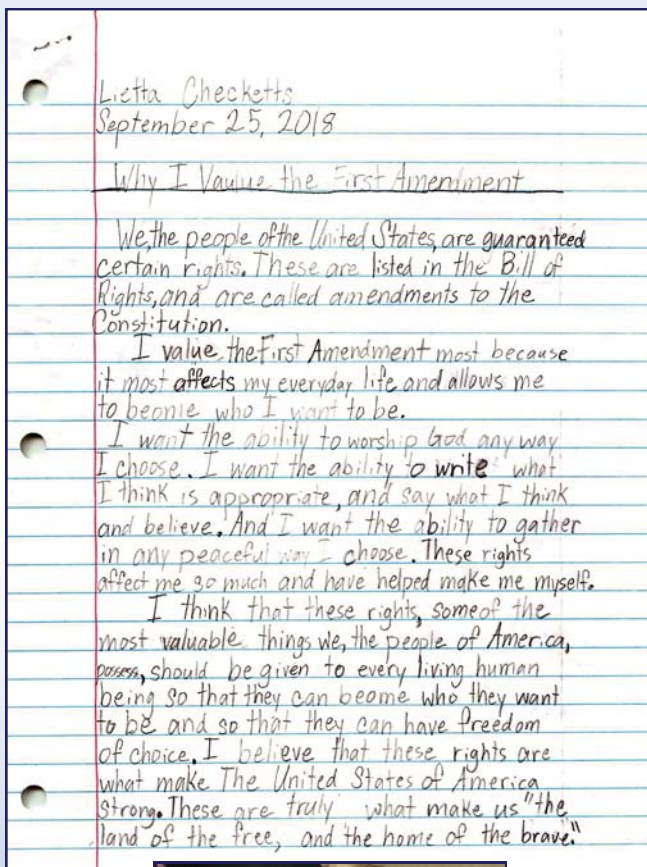 Lietta Checketts
September 25, 2018
Why I Vaulue the First Amendment
We, the people of the United States, are guaranteed
certain rights. These are listed in the Bill of
Rights, and are called amendments to the
Constitution.
I value the First Amendment most because
it most affects my everyday life and allows me
to beome who I want to be.
I want the ability to worship God any way
I choose. I want the ability to write what
I think is appropriate, and say what I think
and believe. And I want the ability to gather
in any peaceful way I choose. These rights
affect me so much and have helped make me myself.
I think that these rights, some of the
most valuable things we, the people of America,
possess, should be given to every living human
being so that they can beome who they want
to be and so that they can have freedom
of choice. I believe that these rights are
what make The United States of America
strong. These are truly what make us "the
land of the free, and the home of the brave."